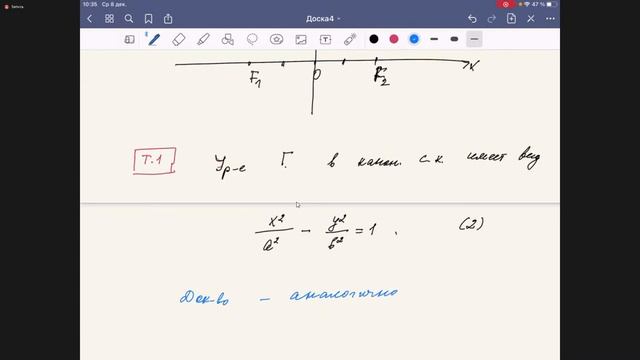 Запись
10:35 Ср 8 дек.
47 %
Доска4
F₁ O F₂ x
Т.1 Ур-е Г. в канон. с.к. имеет вид
x²/a² - y²/b² = 1 . (2)
Док-во - аналогично